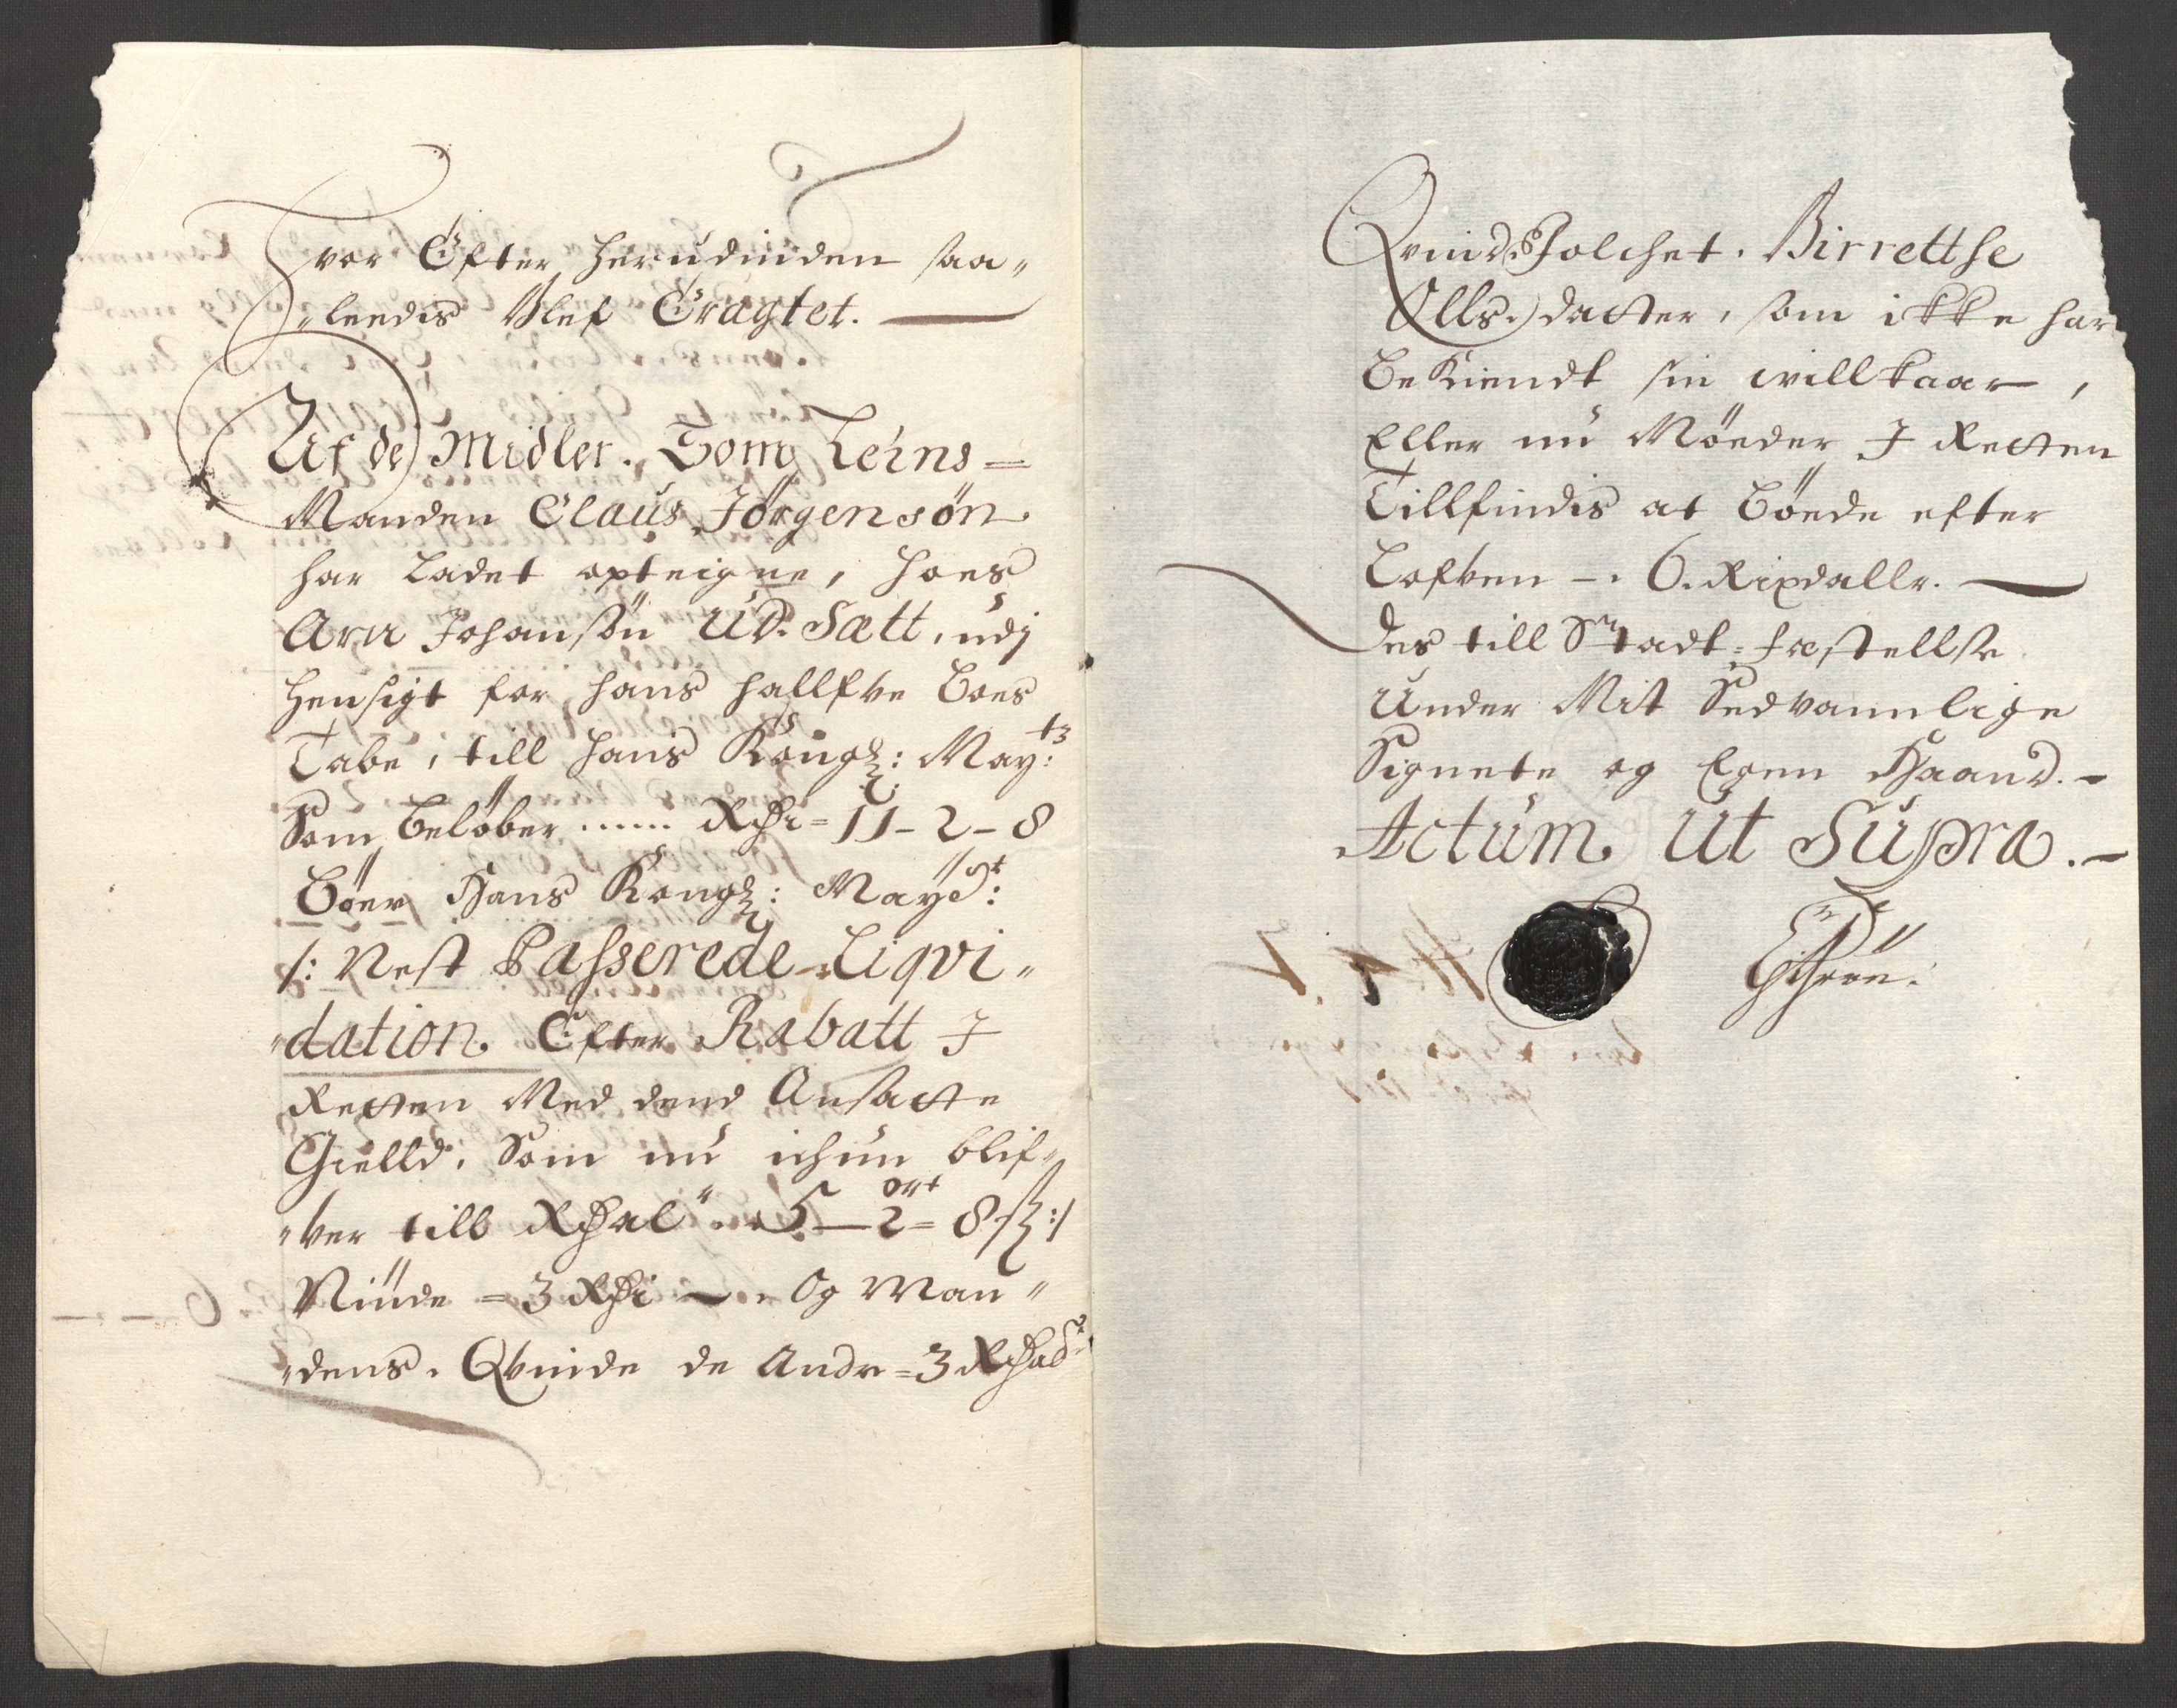 Hvor Efter herudinden saa„
„leedis blef Eragtet.
Af de Midler. Som Leins=
Manden Claus Jörgensön
har ladet opteigne, hoes
Arn Johansön Ud. Sætt, udj
hensigt for hans hallfve boes
Tabe, till hans Kongl: Mayts:
Som beløber ...... Rdr = 11 - 2 - 8
bör Hans Kongl: Mayst:
/: Nest Passerede Liqvi„
„dation Efter Rabatt I
Retten Med dend Ansatte
Gielld. Som nu ichun blif„
„ver till Rdal 5 — 2 ort = 8 ß :/
Niude = 3 Rdr — Og Man„
„dens. Qvinde de Andre = 3 Rdal
Qvindfolchet. Birretthe
Olls.datter, som ikke har
bekiendt sin willkaar,
Eller nu Möeder I Retten
Tillfindis at böede efter
Lofven —. 6. Rixdallr.
Des till Stadt=fæstellse
Under Mit Sedvannlige
Signete og Egen Haand.
Actum Ut Supra.